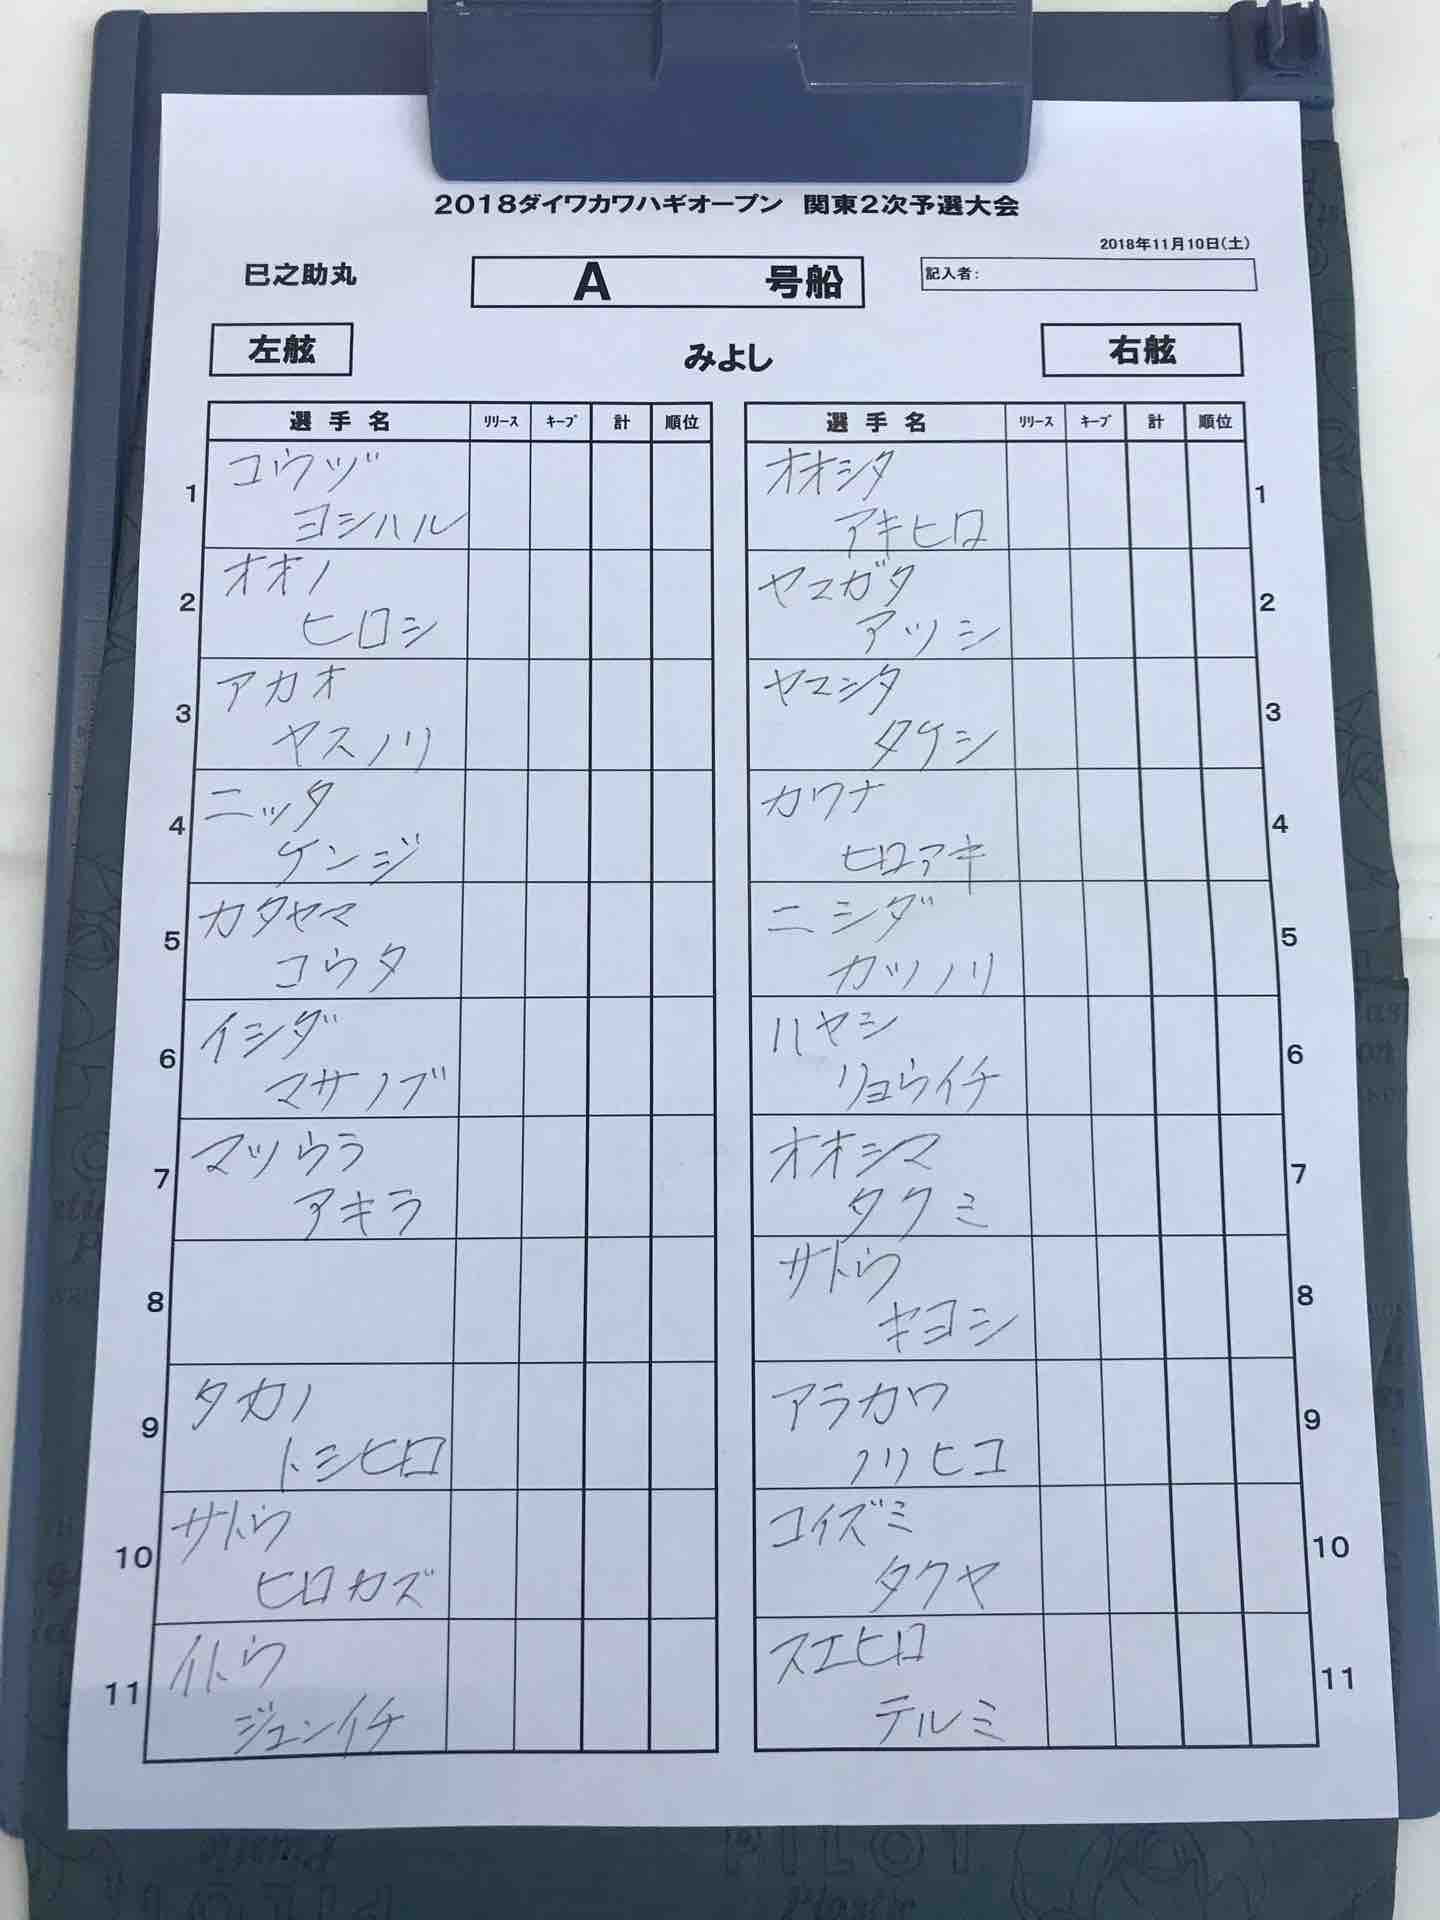 2018ダイワカワハギオープン 関東2次予選大会
2018年11月10日(土)
巳之助丸
A 号船
記入者:
左舷
みよし
右舷
選手名 リリース キープ 計 順位
1 コウヅ
ヨシハル
2 オオノ
ヒロシ
3 アカオ
ヤスノリ
4 ニッタ
ケンジ
5 カタヤマ
コウタ
6 イシダ
マサノブ
7 マツウラ
アキラ
8
9 タカノ
トシヒロ
10 サトウ
ヒロカズ
11 イトウ
ジュンイチ
選手名 リリース キープ 計 順位
オオシタ 1
アキヒロ
ヤマガタ 2
アツシ
ヤマシタ 3
タケシ
カワナ 4
ヒロアキ
ニシダ 5
カツノリ
ハヤシ 6
リョウイチ
オオシマ 7
タクミ
サトウ 8
キヨシ
アラカワ 9
ノリヒコ
コイズミ 10
タクヤ
スエヒロ 11
テルミ
PILOT
Plastic